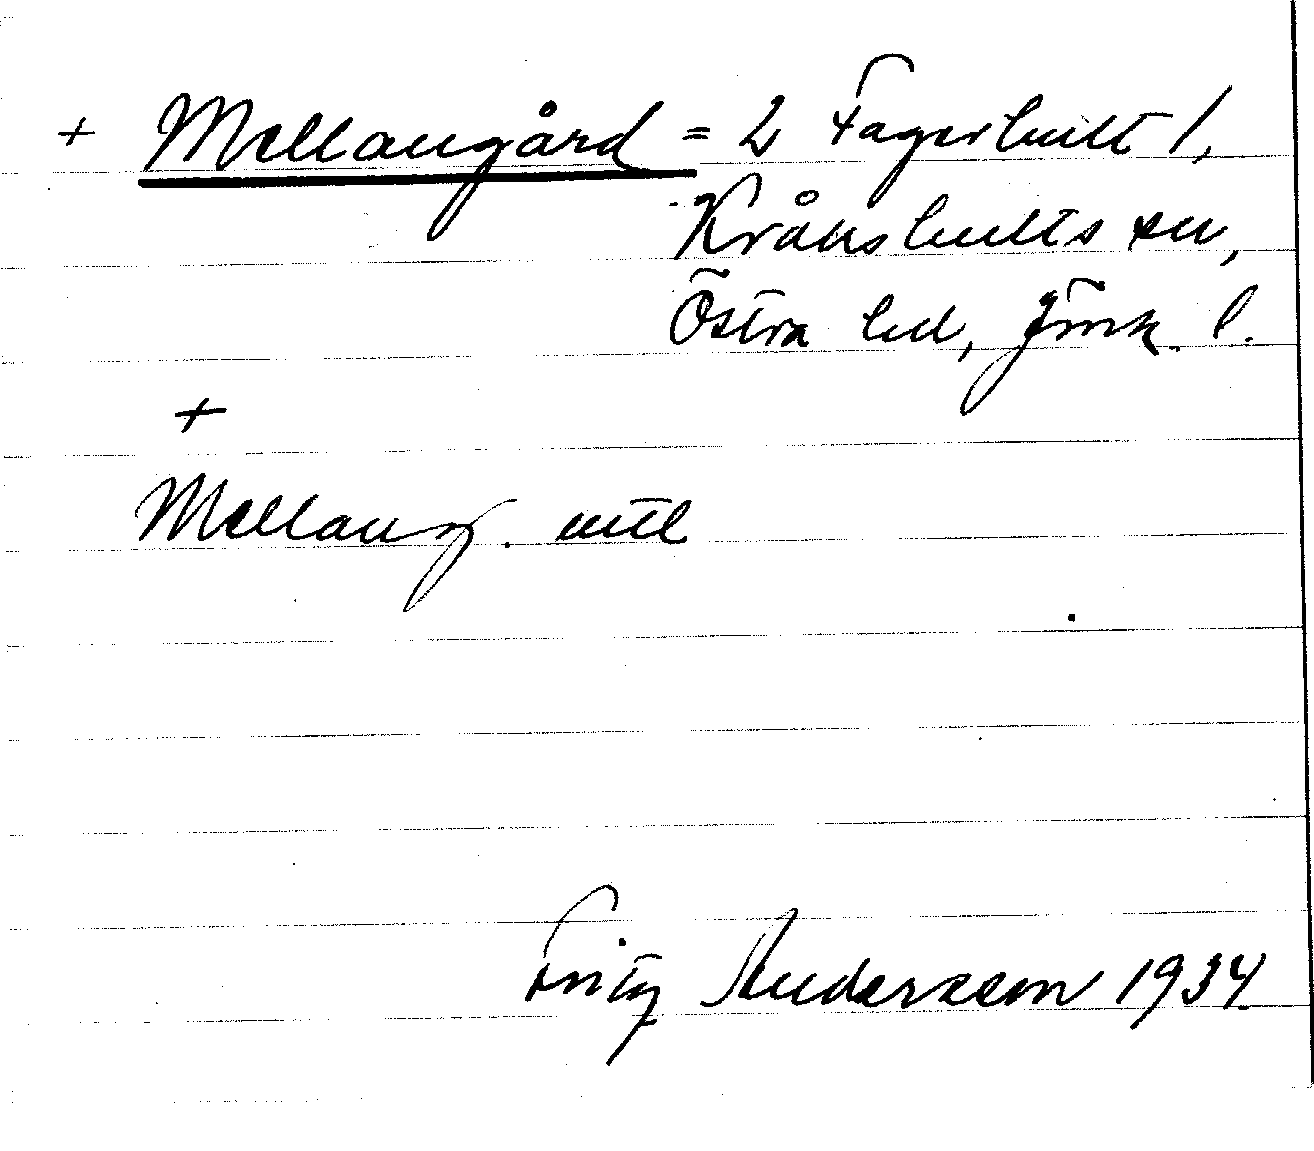 + Mellangård = 2 Fagerhult 1,
Kråkshults sn,
Östra hd, Jönk. l.
+
Mellang. mtl
Fritz Andersson 1934